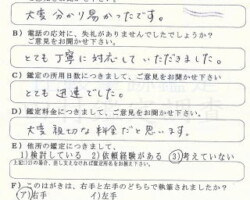 大変分かり易かったです。
B）電話の応対に、失礼がありませんでしたでしょうか？
ご意見をお聞かせ下さい
とても丁寧に対応していただきました。
C）鑑定の所用日数につきまして、ご意見をお聞かせ下さい
とても迅速でした。
D）鑑定料金につきまして、ご意見をお聞かせ下さい
大変親切な料金だと思います。
E）他所の鑑定につきまして、
1）検討している 2）依頼経験がある 3）考えていない
F）このはがきは、右手と左手のどちらで執筆されましたか？
ア）右手 イ）左手